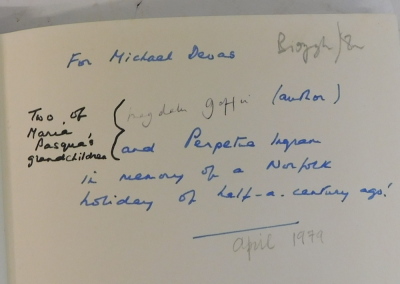 For Michael Devas
Two of
Maria
Pasqua's
grandchildren
magdalen goffin (author)
and Perpetua Ingram
in memory of a Norfolk
holiday of half-a-century ago!
April 1979